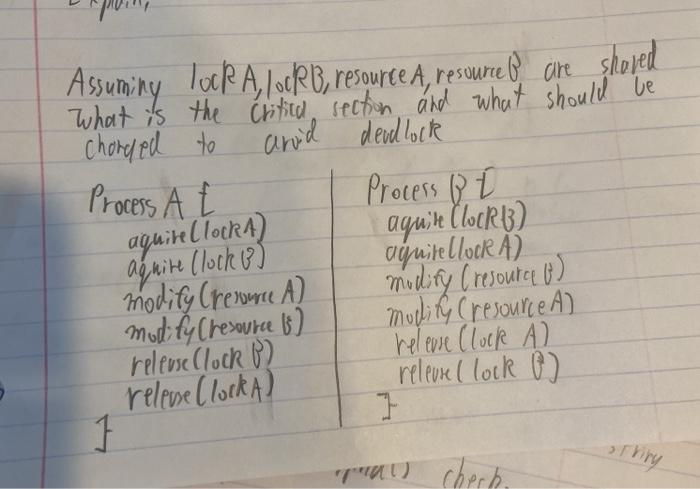 Explain,
Assuming lock A, lock B, resource A, resource B are shared
what is the critical section and what should be
changed to avoid deadlock
Process A {
aquire (lock A)
aquire (lock B)
modify (resource A)
modify (resource B)
release (lock B)
release (lock A)
}
Process B {
aquire (lock B)
aquire (lock A)
modify (resource B)
modify (resource A)
release (lock A)
release (lock B)
}
check.